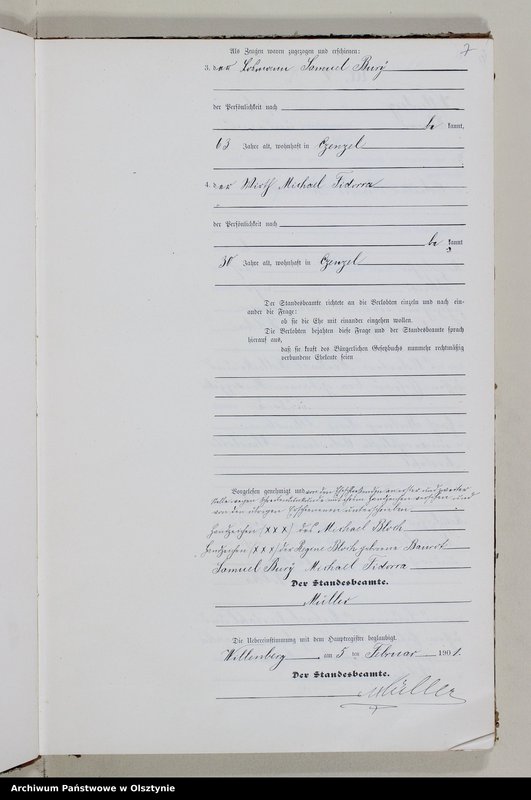 7
Als Zeugen waren zugezogen und erschienen:
3. der Losmann Samuel Burÿ
der Persönlichkeit nach
be kannt,
63 Jahre alt, wohnhaft in Czenzel
4. der Wirth Michael Fidorra
der Persönlichkeit nach
be kannt
30 Jahre alt, wohnhaft in Czenzel
Der Standesbeamte richtete an die Verlobten einzeln und nach ein-
ander die Frage:
ob sie die Ehe mit einander eingehen wollen.
Die Verlobten bejahten diese Frage und der Standesbeamte sprach
hierauf aus,
daß sie kraft des Bürgerlichen Gesetzbuchs nunmehr rechtmäßig
verbundene Eheleute seien
Vorgelesen, genehmigt und von den Eheschließenden an erster und zweiter
Stelle wegen Schreibensunkunde mit ihrem Handzeichen versehen und
von den übrigen Erschienenen unterschrieben
Handzeichen (xxx) des Michael Bloch
Handzeichen (xxx) der Regine Bloch geborene
Samuel Burÿ Michael Fidorra
Der Standesbeamte.
Müller
Die Uebereinstimmung mit dem Hauptregister beglaubigt.
Willenberg, am 5 ten Februar 1901.
Der Standesbeamte.
Müller
Archiwum Państwowe w Olsztynie